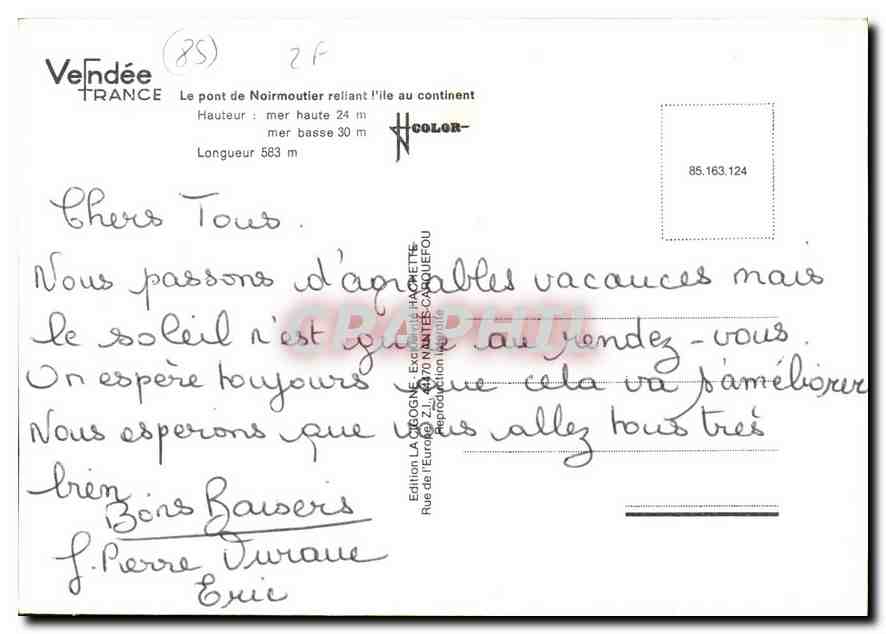 (85) 2 F
Vendée
FRANCE
Le pont de Noirmoutier reliant l'île au continent
Hauteur : mer haute 24 m
mer basse 30 m
Longueur 583 m
COLOR
85.163.124
Chers Tous.
Nous passons d'agréables vacances mais
le soleil n'est guère au rendez-vous.
On espère toujours que cela va s'améliorer
Nous esperons que vous allez tous très
bien
Bons Baisers
J. Pierre
Eric
Edition LA CIGOGNE - Exclusivité HACHETTE
Rue de l'Europe Z.I., 44470 NANTES-CARQUEFOU
Reproduction interdite
CPAPHIL